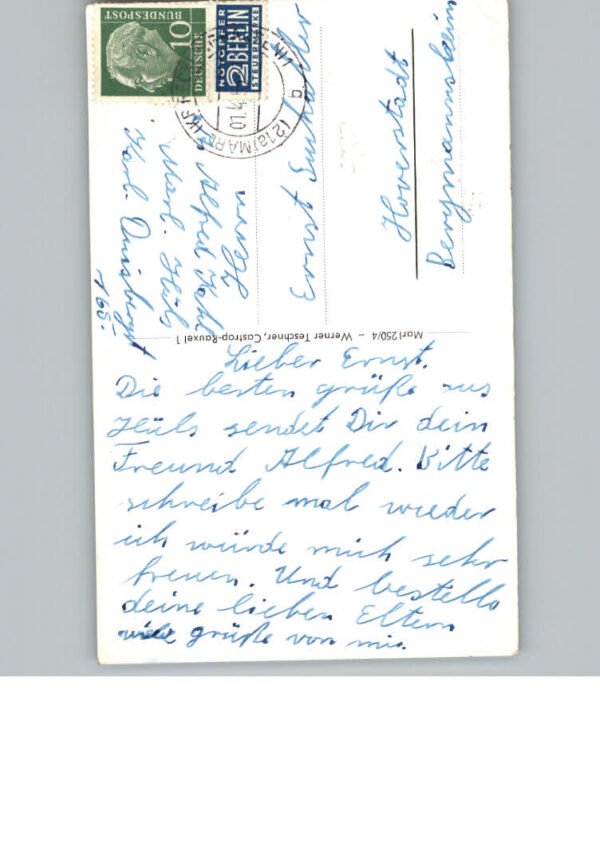 Lieber Ernst.
Die besten grüße aus
Hüls sendet Dir dein
Freund Alfred. Bitte
schreibe mal wieder
ich würde mich sehr
freuen. Und bestelle
deine lieben Eltern
viele grüße von mir.
Marl 250/4 – Werner Teschner, Castrop-Rauxel 1
Herrn
Alfred
Marl. Hüls
Karl-
165.
Ernst
Hoverstadt
Bergmannsheim
10
DEUTSCHE
BUNDESPOST
NOTOPFER
2 BERLIN
STEUERMARKE
(21a) MARL
01.